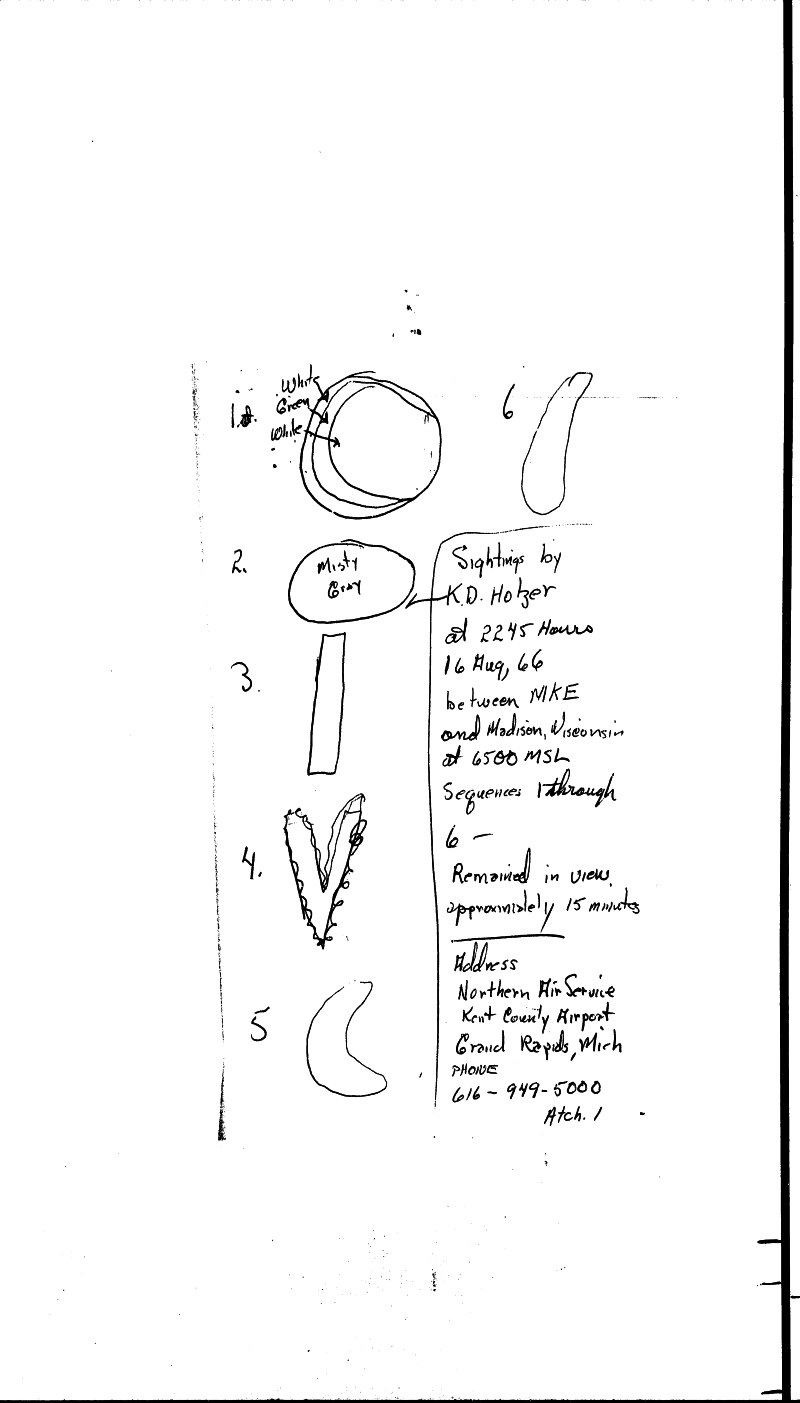 1st.
White
Green
White
6
2.
Misty
Gray
3.
4.
5
Sightings by
K.D. Hotzer
at 2245 Hours
16 Aug, 66
between MKE
and Madison, Wisconsin
at 6500 MSL
Sequences 1 through
6 –
Remained in view
approximately 15 minutes
Address
Northern Air Service
Kent County Airport
Grand Rapids, Mich
PHONE
616-949-5000
Atch. 1